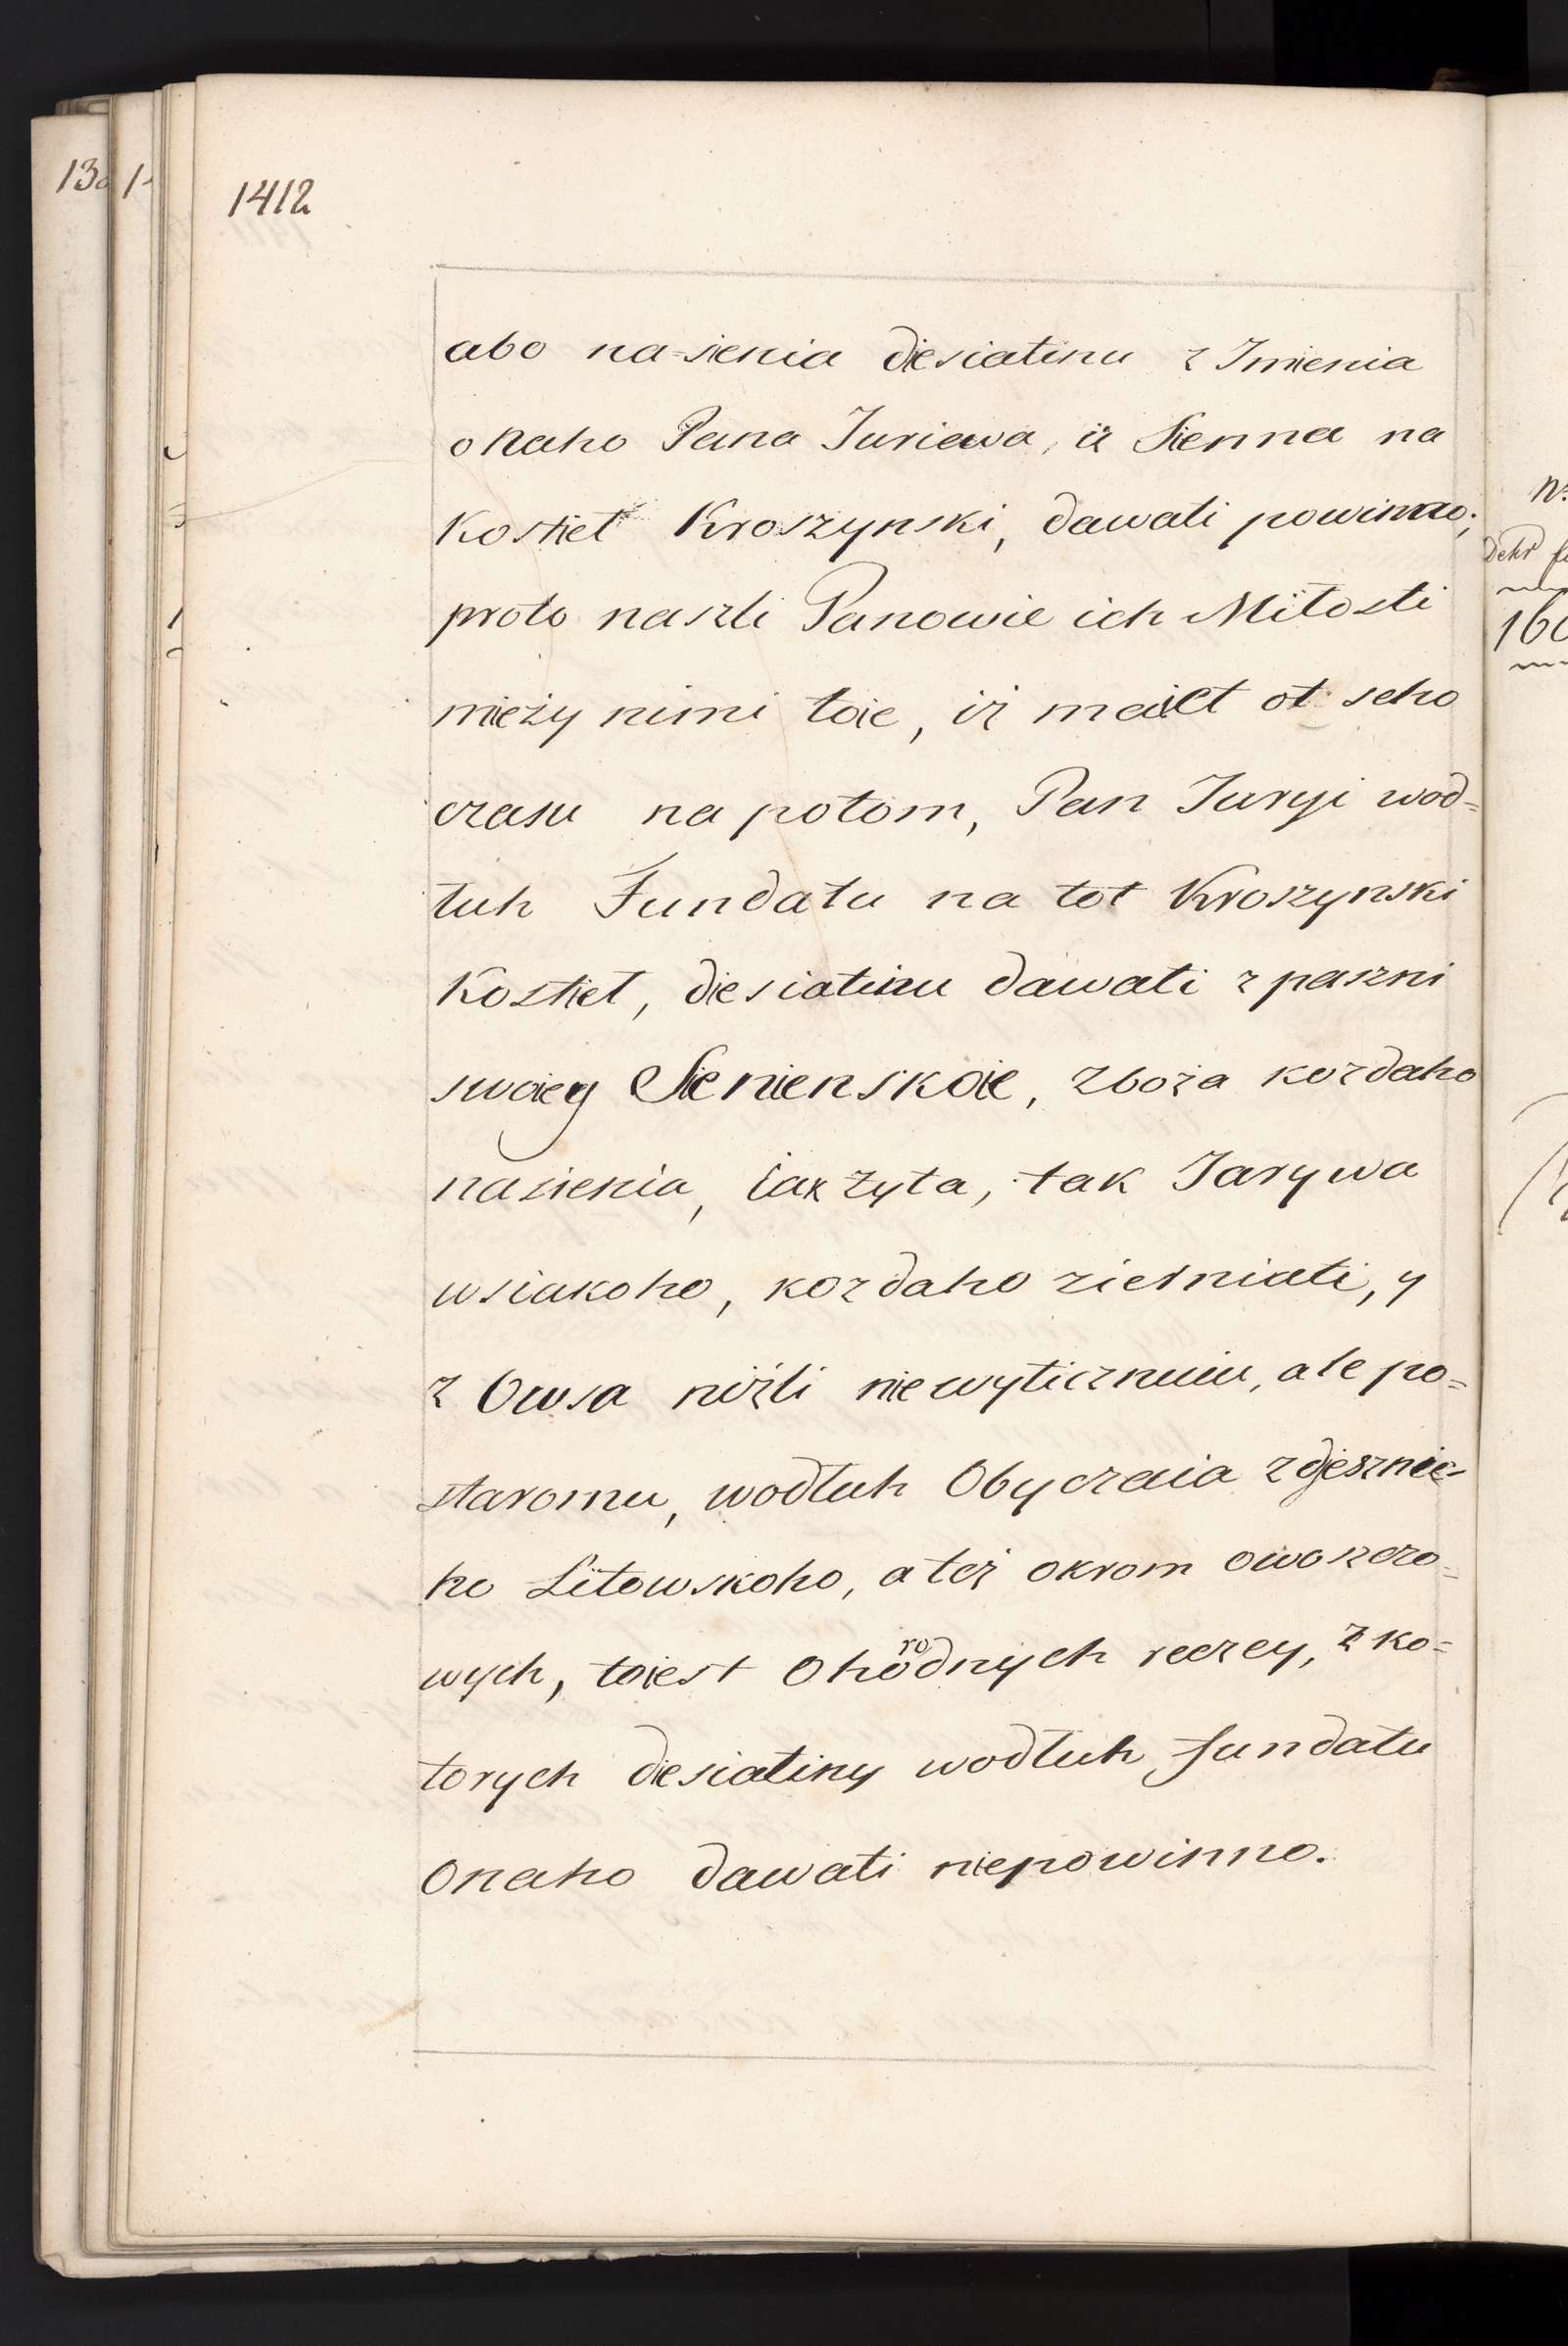 1412
abo na-sienia diesiatinu z Imienia
onaho Pana Juriewa, iz Sienna na
Kostieł Kroszynski, dawati powinno;
proto naszli Panowie ich Miłosti
mieży nimi toie, iż maiet ot seho
czasu na potom, Pan Juryi wod=
łuh Fundału na tot Kroszynski
Kostieł, diesiatinu dawati z paszni
swoiey Sienienskoie, zboża kozdaho
nasienia, iak żyta, tak Jarywa
wsiakoho, kozdaho zierniati, y
z Owsa niżli niewyticznuiu, ale po=
staromu, wodłuh Obyczaia zdiesznie=
ho Litowskoho, a też okrom owoszczo=
wych, toiest Ohorodnych reczey, z ko=
torych diesiatiny wodłuh fundału
Onaho dawati niepowinno.